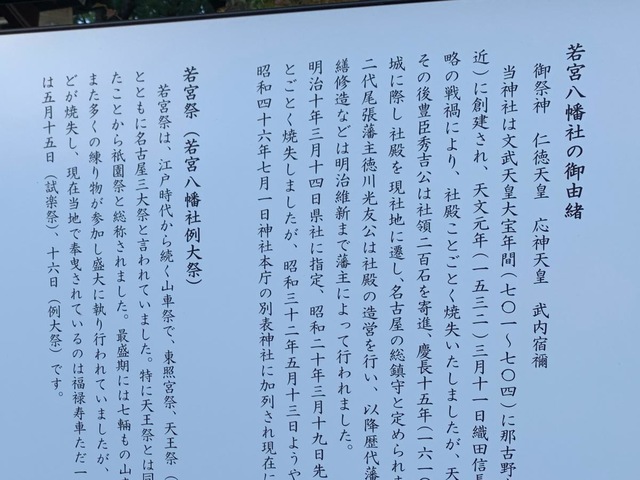 若宮八幡社の御由緒
御祭神　仁徳天皇　応神天皇　武内宿禰
当神社は文武天皇大宝年間（七〇一～七〇四）に那古野
近）に創建され、天文元年（一五三二）三月十一日織田信長
略の戦禍により、社殿ことごとく焼失いたしましたが、天
その後豊臣秀吉公は社領二百石を寄進、慶長十五年（一六一〇
城に際し社殿を現社地に遷し、名古屋の総鎮守と定められま
二代尾張藩主徳川光友公は社殿の造営を行い、以降歴代藩
繕修造などは明治維新まで藩主によって行われました。
明治十年三月十四日県社に指定、昭和二十年三月十九日先
とごとく焼失しましたが、昭和三十二年五月十三日ようや
昭和四十六年七月一日神社本庁の別表神社に加列され現在に
若宮祭（若宮八幡社例大祭）
若宮祭は、江戸時代から続く山車祭で、東照宮祭、天王祭（
とともに名古屋三大祭と言われていました。特に天王祭とは同
たことから祇園祭と総称されました。最盛期には七輌もの山
また多くの練り物が参加し盛大に執り行われていましたが、
どが焼失し、現在当地で奉曳されているのは福禄寿車ただ一
は五月十五日（試楽祭）、十六日（例大祭）です。